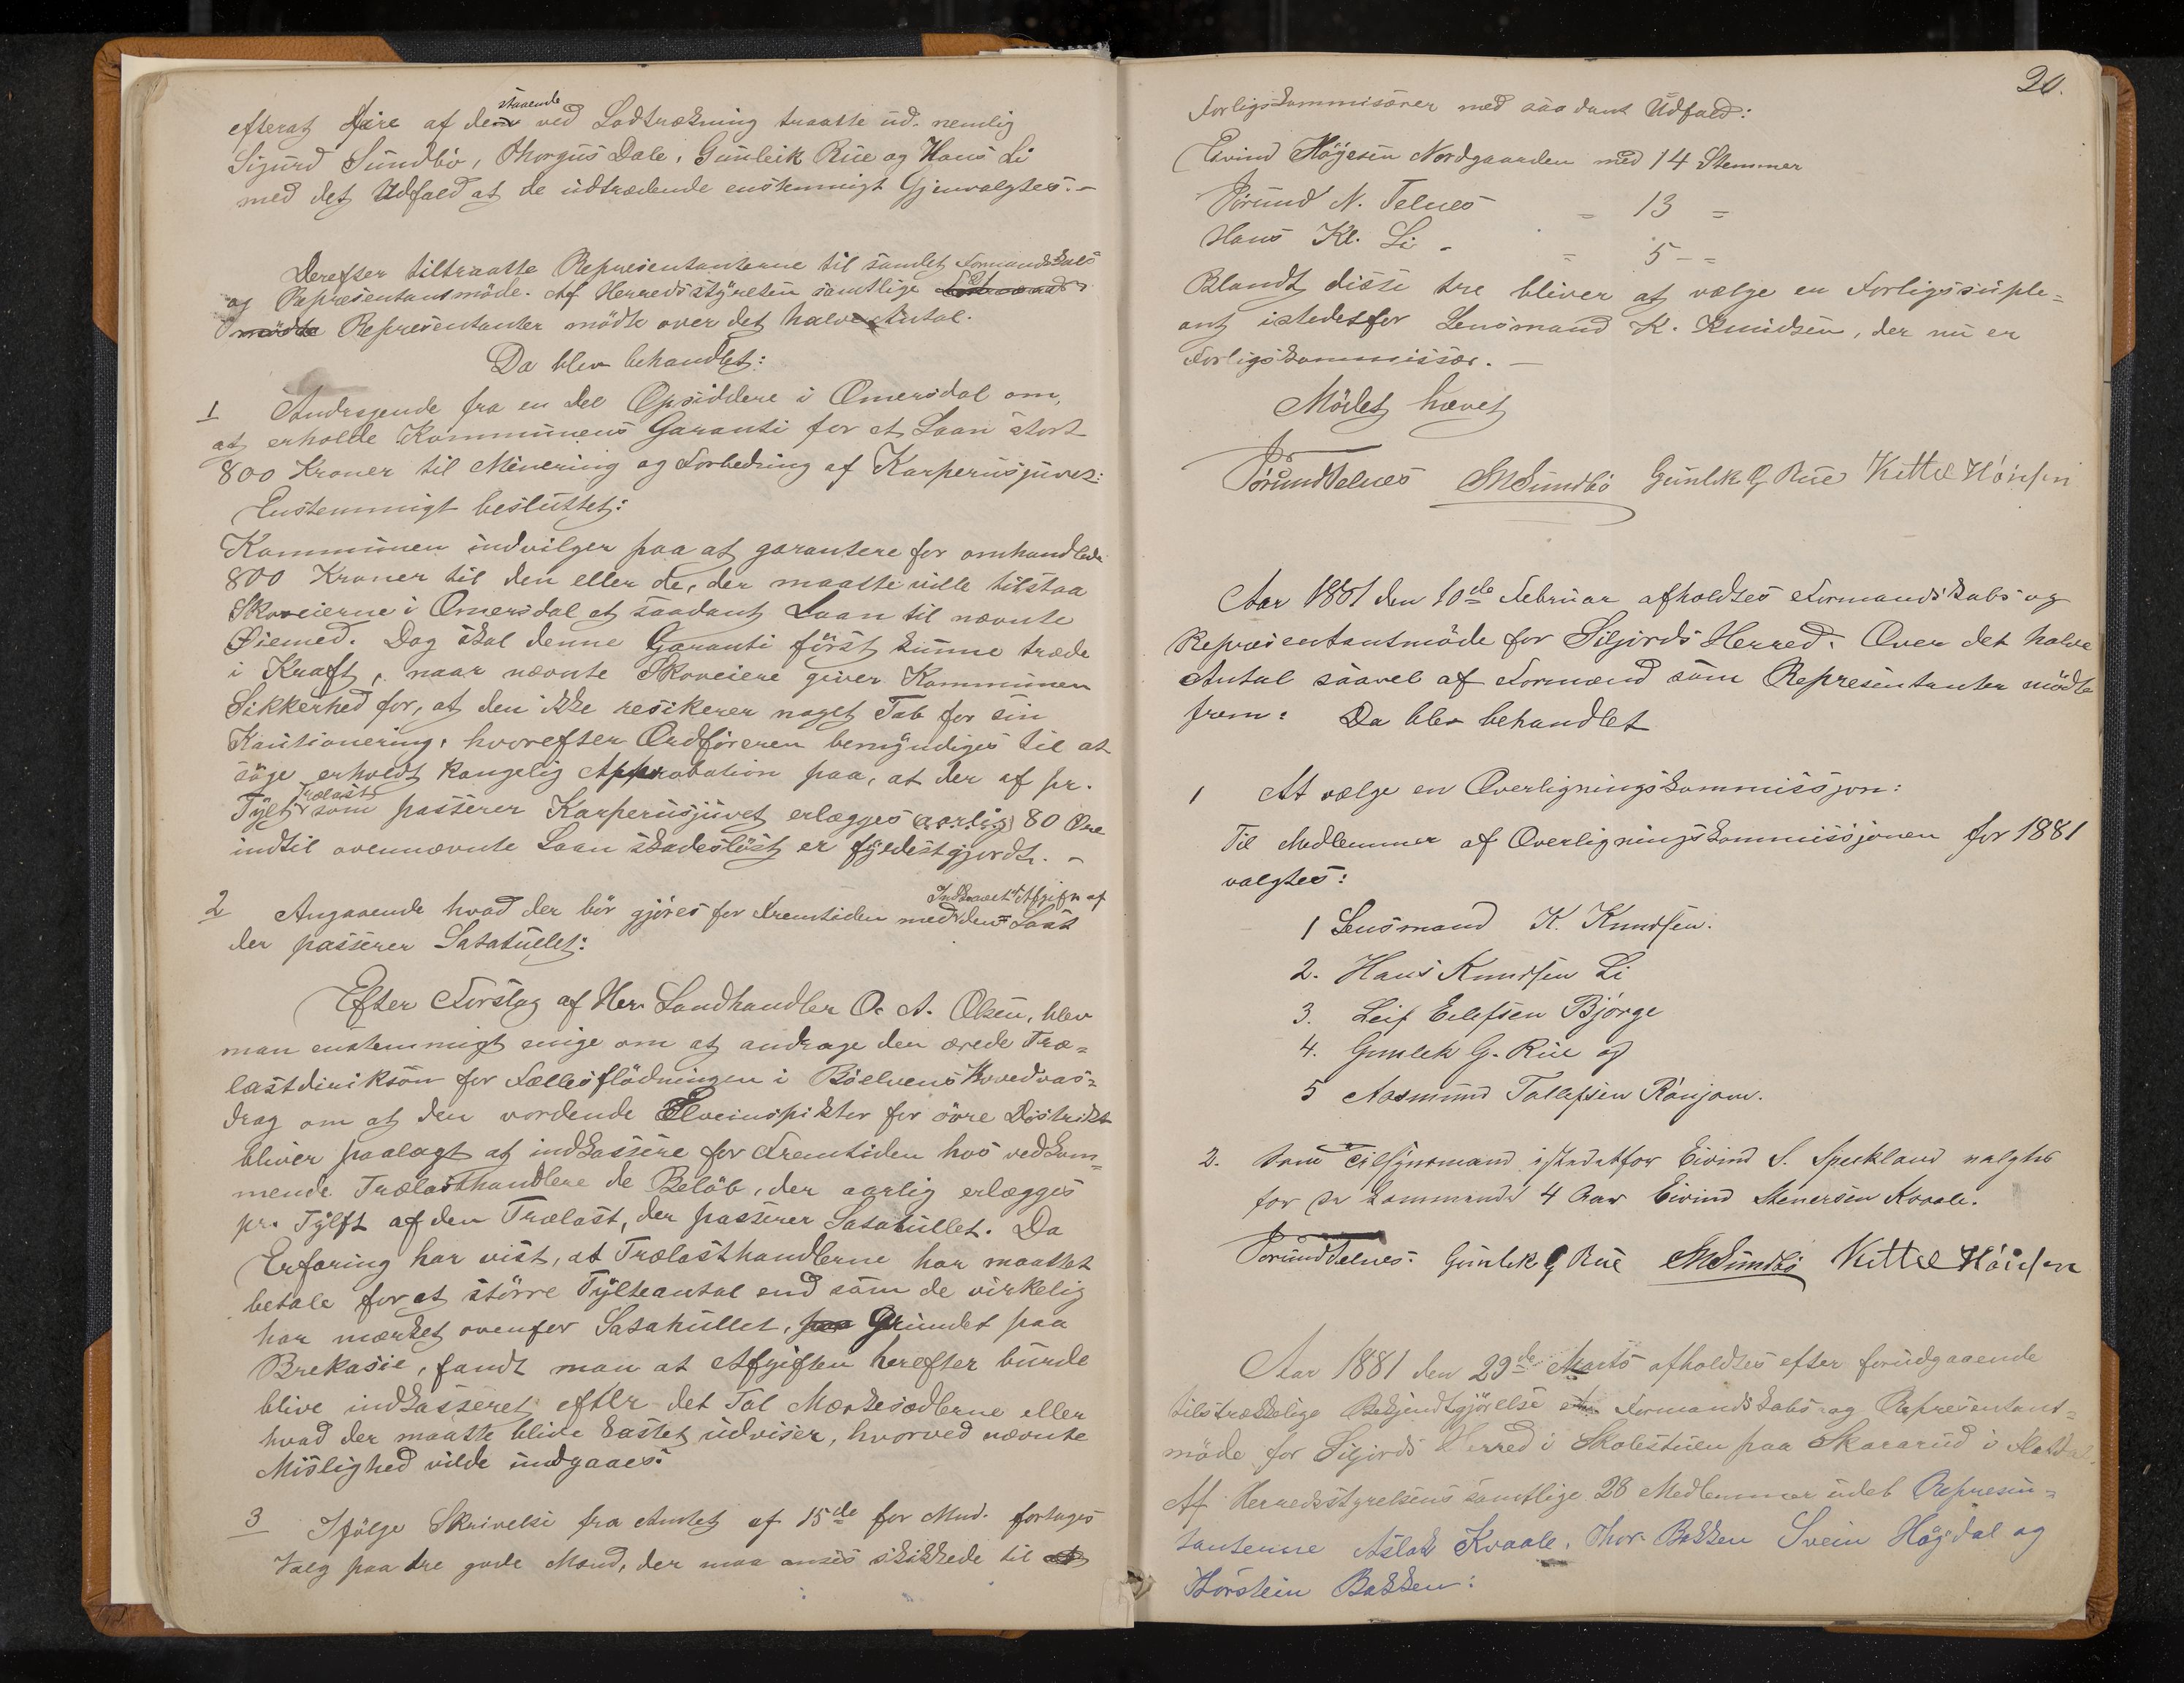 efterat fire af den staaende ved Lodtrækning traatte ud. nemlig
Sigurd Sundbö, Thorgus Dale, Gunleik Rue og Hans Li
med det Udfald at de udtrædende enstemmigt Gjenvalgtes. –
Derefter tiltraatte Repræsentanterne til samlet Formandskabs
og Repræsentantmöde. Af Herredsstyrelsen samtlige
mödte Repræsentanter mödte over det halve Antal.
Da blev behandlet:
1 Andragende fra en del Opsiddere i Omersdal om,
at erholde Kommunens Garanti for et Laan stort
800 Kroner til Minering og Forbedring af Karperusjuvet:
Enstemmigt besluttet:
Kommunen indvilger paa at garantere for omhandlede
800 Kroner til den eller de, der maatte ville tilstaa
Skoveierne i Omersdal et saadant Laan til nævnte
Øiemed. Dog skal denne Garanti först kunne træde
i Kraft, naar nævnte Skoveiere giver Kommunen
Sikkerhed for, at den ikke resikerer noget Tab for sin
Kautionering, hvorefter Ordföreren bemyndiges til at
söge erholdt kongelig Approbation paa, at der af pr.
Tylt Trælast som passerer Karperusjuvet erlægges (aarlig) 80 Øre
indtil ovennævnte Laan skadeslöst er fyldestgjordt. –
2 Angaaende hvad der bör gjöres for Fremtiden med Indkrævet Afgift af den Last
der passerer Satahullet:
Efter Forslag af Her. Landhandler O. A. Olsen, blev
man enstemmigt enige om at andrage den ærede Træ=
lastdirektion for Fællesflödningen i Böelvens Hovedvas=
drag om at den vordende Elveinspektör for övre Distrikt
bliver paalagt at indkassere for Fremtiden hos vedkom=
mende Trælasthandlere de Belöb, der aarlig erlægges
pr. Tylft af den Trælast, der passerer Satahullet. Da
Erfaring har vist, at Trælasthandlerne har maattet
betale for et större Tylteantal end som de virkelig
har mærket ovenfor Satahullet, paa Grundet paa
Brekasie, fandt man at Afgiften herefter burde
blive indkasseret efter det Tal Mærkesedlerne eller
hvad der maatte blive kastet udviser, hvorved nævnte
Mislighed vilde undgaaes:
3 Ifölge Skrivelse fra Amtet af 15de for Mnd. fortages
Valg paa tre gode Mænd, der maa anses skikkede til
20.
Forligskommisærer med saadant Udfald:
Eivind Höyesen Nordgaarden med 14 Stemmer
Jörund N. Telnes = 13 =
Hans Kl. Li - = 5 - =
Blandt disse tre bliver at vælge en Forligssuple=
ant istedetfor Lensmand K. Knudsen, der nu er
Forligskommissær. –
Mödet hævet
Jörund Telnes SNSundbö Gunlek G Rue Kittel Höisen
Aar 1881 den 10de Februar afholdtes Formandskabs og
Repræsentantmöde for Siljords Herred. Over det halve
Antal saavel af Formænd som Repræsentanter mödte
frem: Da blev behandlet
1 At vælge en Overligningskommissjon:
Til Medlemmer af Overligningskommissjonen for 1881
valgtes:
1 Lensmand K. Knudsen.
2. Hans Knudsen Li
3. Leif Eilefsen Björge
4. Gunlek G. Rue og
5 Aasmund Tallefsen Rönjom.
2. Som Tilsynsmand istedetfor Eivind S. Speckland valgtes
for de kommende 4 Aar Eivind Stenersen Kvaale.
Jorund Telnes. Gunlek G Rue SNSundbö Kittel Höisen
Aar 1881 den 29de Marts afholdtes efter forudgaaende
tilstrækkelige Bekjendtgjörelse Formandskabs og Repræsentant=
möde for Siljords Herred i Skolestuen paa Skararud i Flatdal.
Af Herredsstyrelsens samtlige 28 Medlemmer udet Repræsen=
tanterne Aslak Kvaale, Thor Bakken Svein Högdal og
Thorstein Bakken: